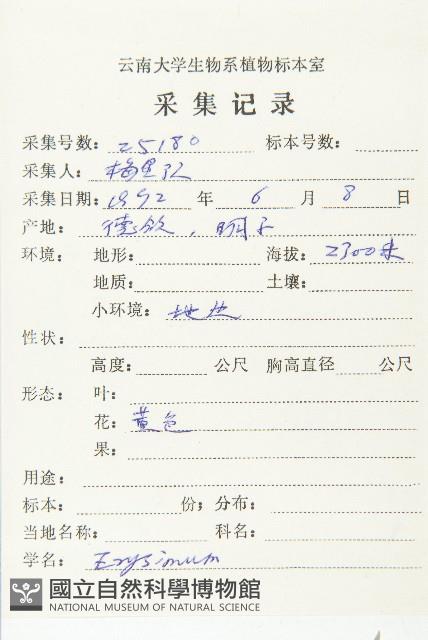 云南大学生物系植物标本室
采集记录
采集号数: 25180 标本号数:
采集人: 梅里队
采集日期: 1992 年 6 月 8 日
产地: 德钦, 明子
环境: 地形: 海拔: 2300米
地质: 土壤:
小环境: 地边
性状:
高度: 公尺 胸高直径 公尺
形态: 叶:
花: 黄色
果:
用途:
标本: 份; 分布:
当地名称: 科名:
学名: Erysimum
國立自然科學博物館
NATIONAL MUSEUM OF NATURAL SCIENCE